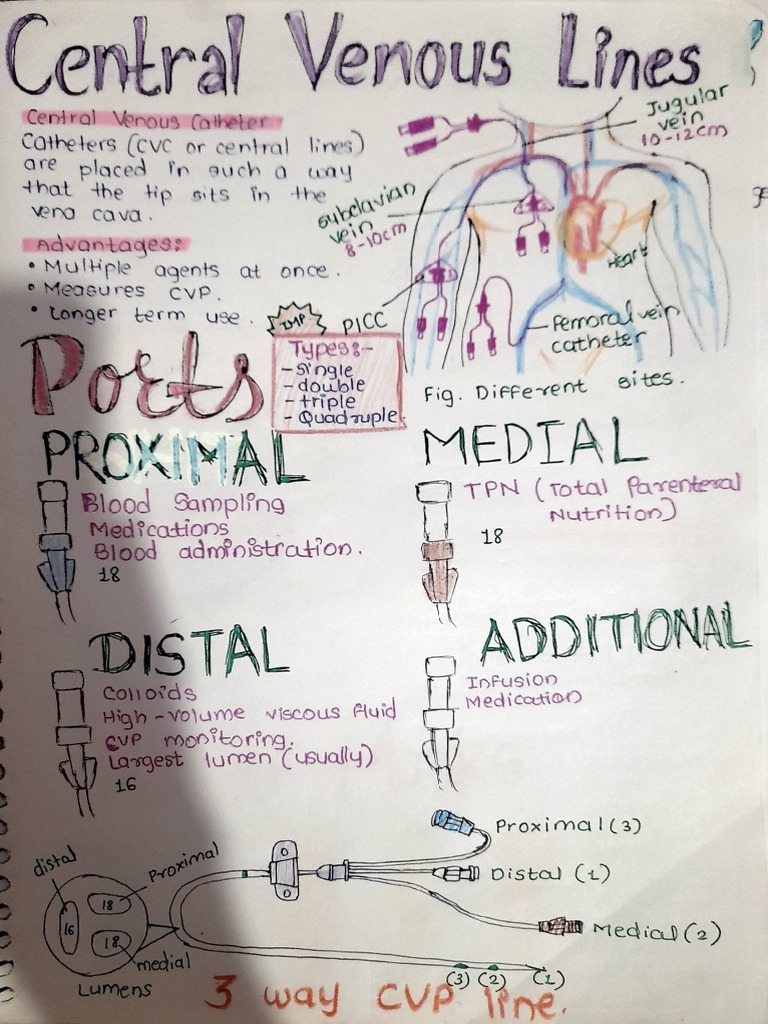 Central Venous Lines
Central Venous Catheter
Catheters (CVC or central lines)
are placed in such a way
that the tip sits in the
vena cava.
Advantages:
• Multiple agents at once.
• Measures CVP.
• Longer term use.
Jugular
vein
10-12cm
subclavian
vein
8-10cm
Heart
PICC
Femoral vein
catheter
Fig. Different sites.
IMP
Types:-
- single
- double
- triple
- Quadruple.
Ports
PROXIMAL
Blood Sampling
Medications
Blood administration.
18
MEDIAL
TPN (Total Parenteral
Nutrition)
18
DISTAL
Colloids
High-volume viscous fluid
CVP monitoring.
Largest lumen (usually)
16
ADDITIONAL
Infusion
Medication
distal
Proximal
18
16
18
medial
Lumens
Proximal (3)
Distal (1)
Medial (2)
(3) (2) (1)
3 way CVP line.